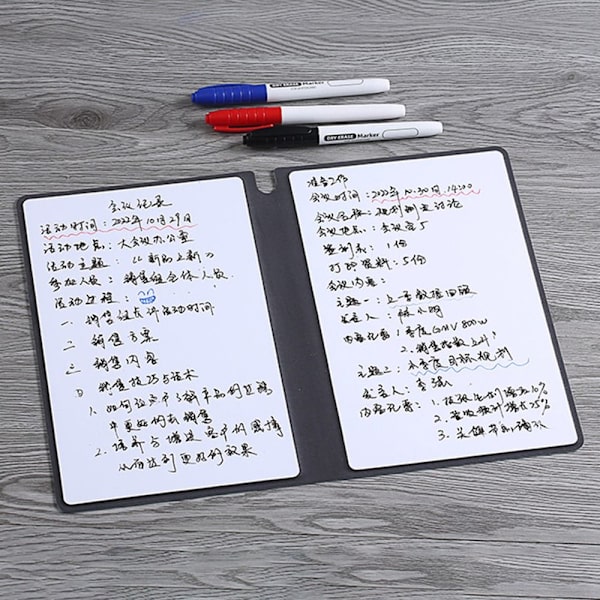 DRY ERASE Marker
DRY ERASE Marker
会议记录
活动时间：2022年10月29日
活动地点：大会议办公室
活动主题：《新品上新》
参加人数：销售组全体人员
活动过程：
一 销售议在许活动时间
二 销售方案
三 销售内容
四 销售技巧与话术
1. 如何让客户了解产品的
更好的去销售
2. 培养与增进客户的感情
从而达到更好的效果
准备工作
会议时间：2022年10.30日.14:00
会议名称：规划制度讨论
会议地点：会议室5
签到表：1份
打印资料：5份
会议内容：
主题一：上季数据回顾
发言人：陈小明
内容范畴：1.季度GMV 800w
2.销售指数上升！
主题二：本季度目标规划
发言人：李强
内容范畴：1. 增长10%
2. 增长25%
3.